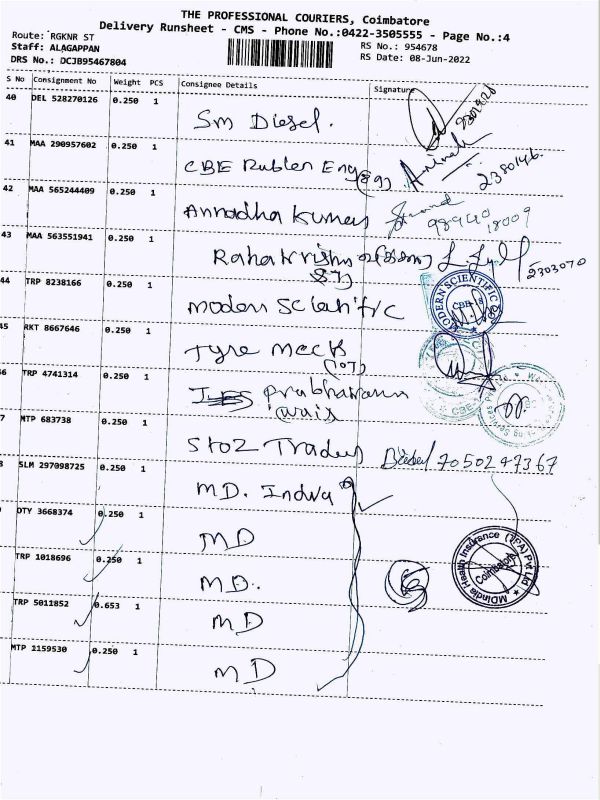 THE PROFESSIONAL COURIERS, Coimbatore
Delivery Runsheet - CMS - Phone No.:0422-3505555 - Page No.:4
Route: RGKNR ST
Staff: ALAGAPPAN
DRS No.: DCJB95467804
RS No.: 954678
RS Date: 08-Jun-2022
S No Consignment No Weight PCS Consignee Details Signature
40 DEL 528270126 0.250 1 Sm Diesel.
41 MAA 290957602 0.250 1 CBE Rubber Engg 2380146.
42 MAA 565244409 0.250 1 Annadha Kumar 98940 18009
43 MAA 563551941 0.250 1 2303070
44 TRP 8238166 0.250 1 modern Scientific
MODERN SCIENTIFIC
CBE-18
45 RKT 8667646 0.250 1 Tyre
46 TRP 4741314 0.250 1
47 MTP 683738 0.250 1 StoZ Traders 7050247367
SLM 297098725 0.250 1 MD. India
OTY 3668374 0.250 1 MD
TRP 1018696 0.250 1 MD.
TRP 5011852 0.653 1 MD
MTP 1159530 0.250 1 MD
MDIndia Health Insurance (TPA) Pvt Ltd
Coimbatore